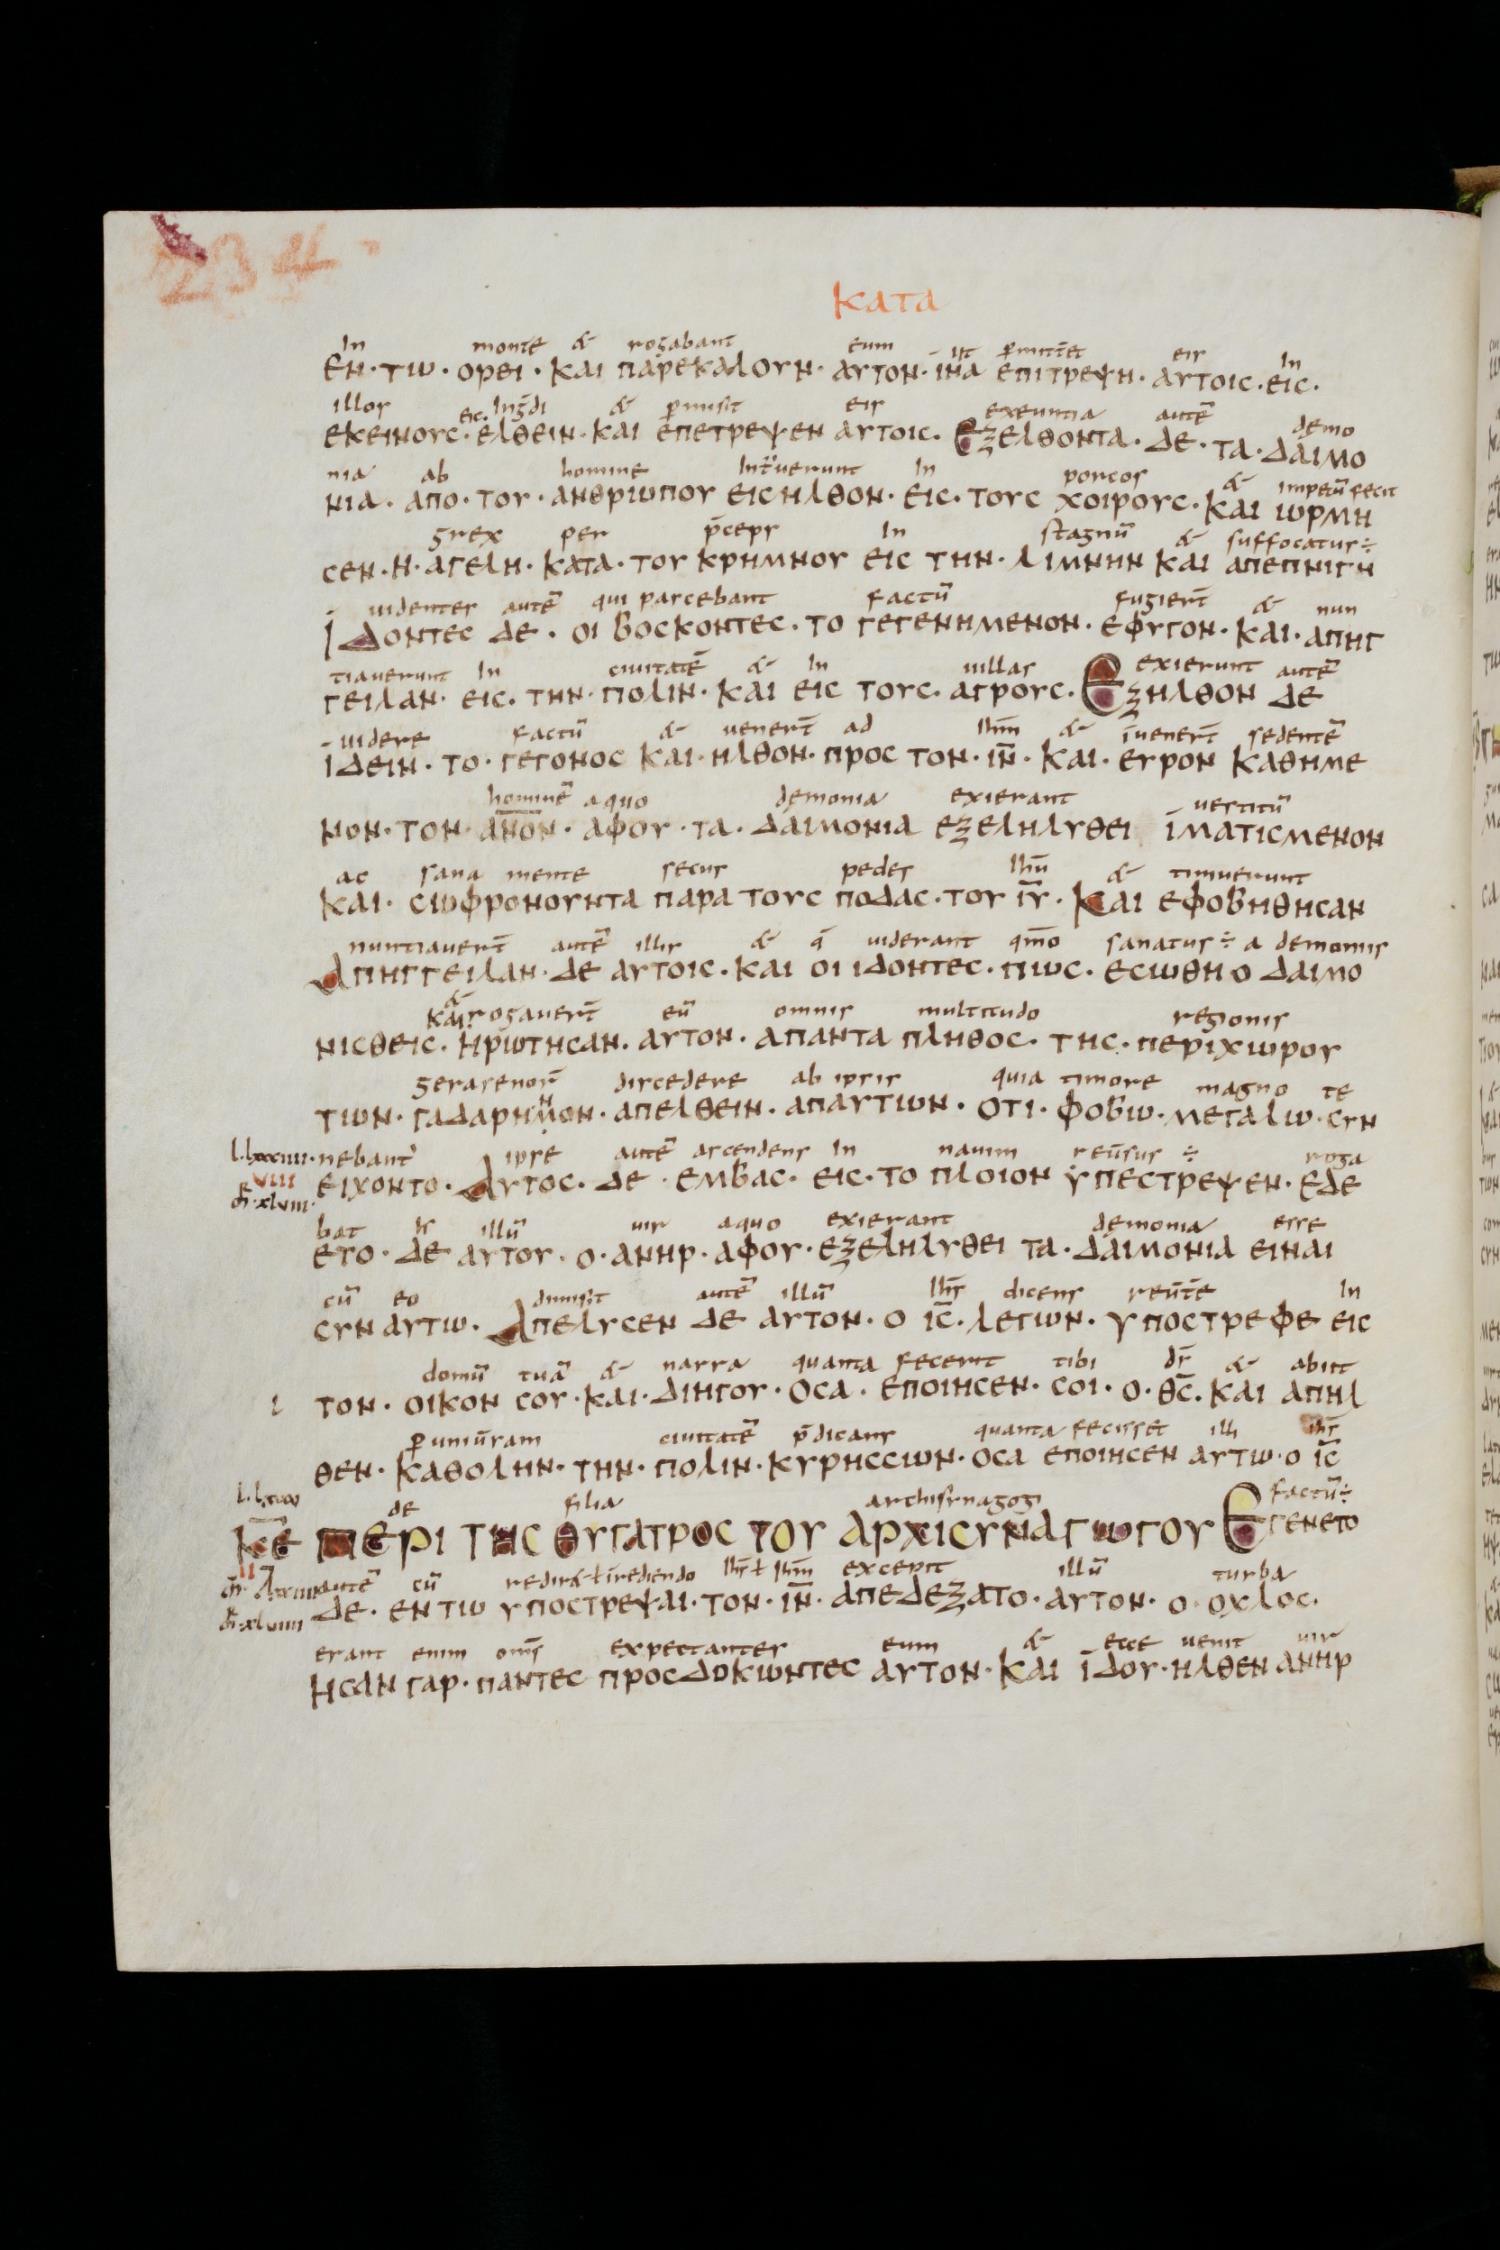 234
ΚΑΤΑ
In monte & rogabant eum ut ꝑmittēt eis In
ΕΝ·ΤΩ·ΟΡΕΙ·ΚΑΙ ΠΑΡΕΚΑΛΟΥΝ·ΑΥΤΟΝ·ΪΝΑ ΕΠΙΤΡΕΨΗ·ΑΥΤΟΙΣ·ΕΙΣ·
illos Ingdi & ꝑmisit eis exeuntia autē demo
ΕΚΕΙΝΟΥΣ·ΕΙΣ·ΕΛΘΕΙΝ·ΚΑΙ ΕΠΕΤΡΕΨΕΝ ΑΥΤΟΙΣ· ΕΞΕΛΘΟΝΤΑ·ΔΕ·ΤΑ·ΔΑΙΜΟ
nia ab homine Intᵛuerunt In porcos & impetū fecit
ΝΙΑ·ΑΠΟ·ΤΟΥ·ΑΝΘΡΙΩΠΟΥ ΕΙΣΗΛΘΟΝ·ΕΙΣ·ΤΟΥΣ ΧΟΙΡΟΥΣ·ΚΑΙ ΩΡΜΗ
grex per p̄ceps In stagnū & suffocatus ÷
ΣΕΝ·Η·ΑΓΕΛΗ·ΚΑΤΑ·ΤΟΥ ΚΡΗΜΝΟΥ ΕΙΣ ΤΗΝ·ΛΙΜΝΗΝ ΚΑΙ ΑΠΕΠΝΙΓΗ
uidentes autē qui parcebant factū fugiert̄ & nun
ΪΔΟΝΤΕΣ ΔΕ·ΟΙ ΒΟΣΚΟΝΤΕΣ·ΤΟ ΓΕΓΕΝΗΜΕΝΟΝ·ΕΦΥΓΟΝ·ΚΑΙ·ΑΠΗΓ
tiauerunt In ciuitatē & In uillas exierunt autē
ΓΕΙΛΑΝ·ΕΙΣ·ΤΗΝ·ΠΟΛΙΝ·ΚΑΙ ΕΙΣ ΤΟΥΣ·ΑΓΡΟΥΣ·ΕΞΗΛΘΟΝ ΔΕ
uidere factū & uenert̄ ad Ihm̄ & īuenert̄ sedentē
ΙΔΕΙΝ·ΤΟ·ΓΕΓΟΝΟΣ ΚΑΙ·ΗΛΘΟΝ·ΠΡΟΣ ΤΟΝ·ΙΝ̄·ΚΑΙ·ΕΥΡΟΝ ΚΑΘΗΜΕ
hominē a quo demonia exierant uestitū
ΝΟΝ·ΤΟΝ·ΑΝ̄ΟΝ·ΑΦΟΥ·ΤΑ·ΔΑΙΜΟΝΙΑ ΕΞΕΛΗΛΥΘΕΙ ΪΜΑΤΙΣΜΕΝΟΝ
ac sana mente secus pedes Ihū & timuerunt
ΚΑΙ·ΣΩΦΡΟΝΟΥΝΤΑ ΠΑΡΑ ΤΟΥΣ ΠΟΔΑΣ·ΤΟΥ ΙῩ·ΚΑΙ ΕΦΟΒΗΘΗΣΑΝ
nuntiauert̄ autē illis & q̄ uiderant qmō sanatus ÷ a demoniis
ΑΠΗΓΓΕΙΛΑΝ·ΔΕ ΑΥΤΟΙΣ·ΚΑΙ ΟΙ ΙΔΟΝΤΕΣ·ΠΩΣ·ΕΣΩΘΗ Ο ΔΑΙΜΟ
& rogauert̄ eū omnis multitudo regionis
ΝΙΣΘΕΙΣ·ΚΑΙ·ΗΡΩΤΗΣΑΝ·ΑΥΤΟΝ·ΑΠΑΝΤΑ ΠΛΗΘΟΣ·ΤΗΣ·ΠΕΡΙΧΩΡΟΥ
gerasenor̄ discedere ab ipsis quia timore magno te
ΤΩΝ·ΓΑΔΑΡΗΝΟΝ·ΑΠΕΛΘΕΙΝ·ΑΠΑΥΤΩΝ·ΟΤΙ·ΦΟΒΩ·ΜΕΓΑΛΩ·ΣΥΝ
nebant ipse autē ascendens In nauim reūsus ÷ roga
ΕΙΧΟΝΤΟ·ΑΥΤΟΣ·ΔΕ·ΕΜΒΑΣ·ΕΙΣ·ΤΟ ΠΛΟΙΟΝ ΥΠΕΣΤΡΕΨΕΝ·ΕΔΕ
bat illū uir a quo exierant demonia esse
ΕΤΟ·ΔΕ ΑΥΤΟΥ·Ο·ΑΝΗΡ·ΑΦΟΥ·ΕΞΕΛΗΛΥΘΕΙ ΤΑ·ΔΑΙΜΟΝΙΑ ΕΙΝΑΙ
cū eo dimisit autē illū Ihs̄ dicens reūtē In
ΣΥΝ ΑΥΤΩ·ΑΠΕΛΥΣΕΝ ΔΕ ΑΥΤΟΝ·Ο ΙΣ̄·ΛΕΓΩΝ·ΥΠΟΣΤΡΕΦΕ ΕΙΣ
domū tuā & narra quanta fecerit tibi ds̄ & abiit
ΤΟΝ·ΟΙΚΟΝ ΣΟΥ·ΚΑΙ·ΔΙΗΓΟΥ·ΟΣΑ·ΕΠΟΙΗΣΕΝ·ΣΟΙ·Ο·ΘΣ̄·ΚΑΙ ΑΠΗΛ
ꝑ uniūram ciuitatē p̄dicans quanta fecisset illi ihs̄
ΘΕΝ·ΚΑΘΟΛΗΝ·ΤΗΝ·ΠΟΛΙΝ·ΚΥΡΗΣΣΩΝ·ΟΣΑ ΕΠΟΙΗΣΕΝ ΑΥΤΩ·Ο ΙΣ̄
de filia archisynagogi factū ÷
ΚΕ̄ ΠΕΡΙ ΤΗΣ ΘΥΓΑΤΡΟΣ ΤΟΥ ΑΡΧΙΣΥΝΑΓΩΓΟΥ ΕΓΕΝΕΤΟ
autē cū redir& ł irediendo Ihs̄ ł Ihm̄ excepit illū turba
ΔΕ·ΕΝ ΤΩ ΥΠΟΣΤΡΕΨΑΙ·ΤΟΝ·ΙΝ̄·ΑΠΕΔΕΞΑΤΟ·ΑΥΤΟΝ·Ο·ΟΧΛΟΣ·
erant enim om̄s expectantes eum & ecce uenit uir
ΗΣΑΝ ΓΑΡ·ΠΑΝΤΕΣ ΠΡΟΣΔΟΚΩΝΤΕΣ ΑΥΤΟΝ·ΚΑΙ ΪΔΟΥ·ΗΛΘΕΝ ΑΝΗΡ